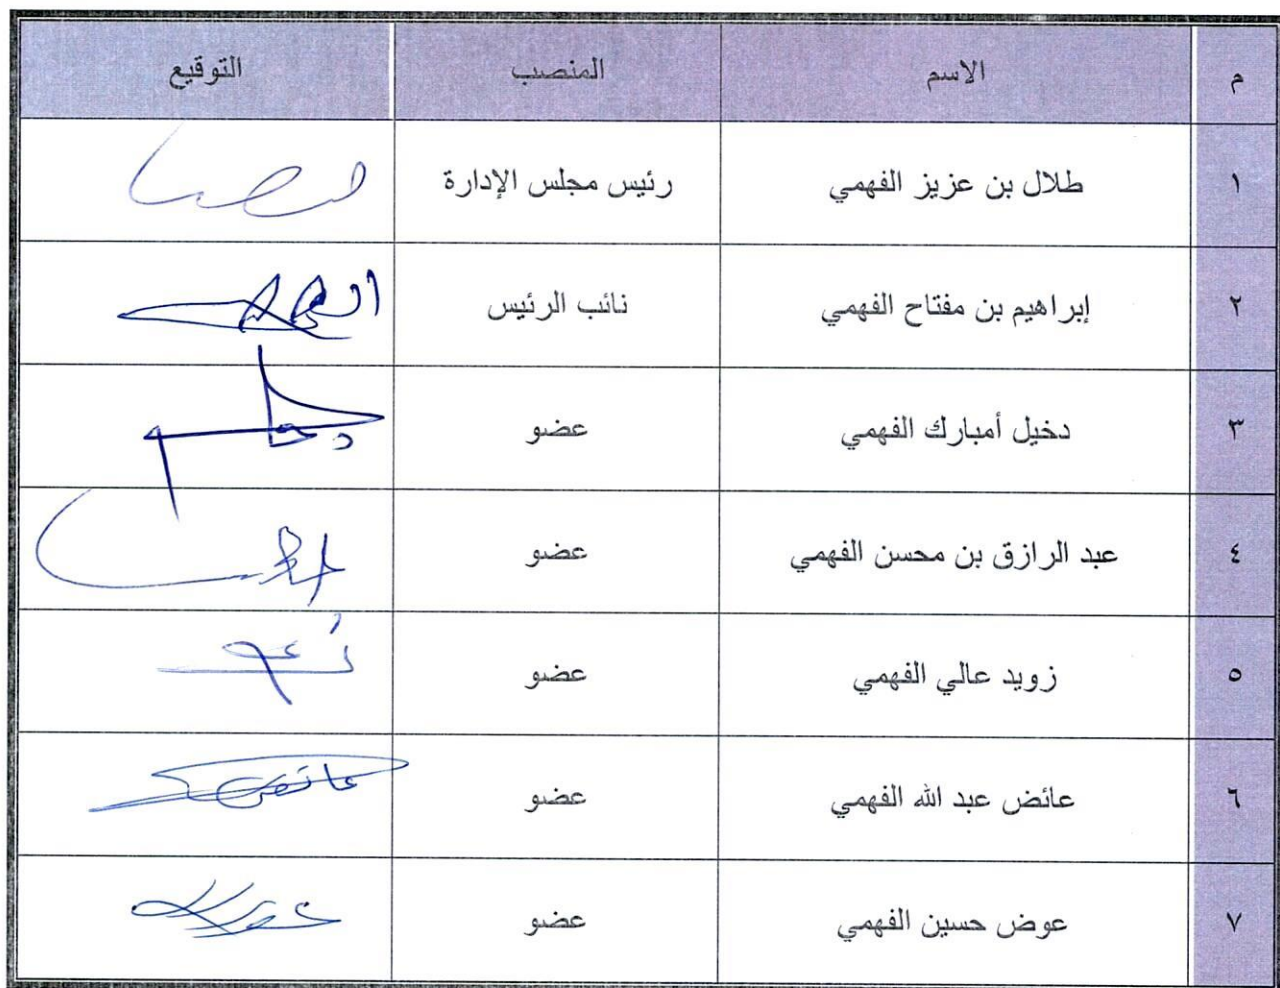 م الاسم المنصب التوقيع
١ طلال بن عزيز الفهمي رئيس مجلس الإدارة
٢ إبراهيم بن مفتاح الفهمي نائب الرئيس
٣ دخيل أمبارك الفهمي عضو
٤ عبد الرازق بن محسن الفهمي عضو
٥ زويد عالي الفهمي عضو
٦ عائض عبد الله الفهمي عضو
٧ عوض حسين الفهمي عضو